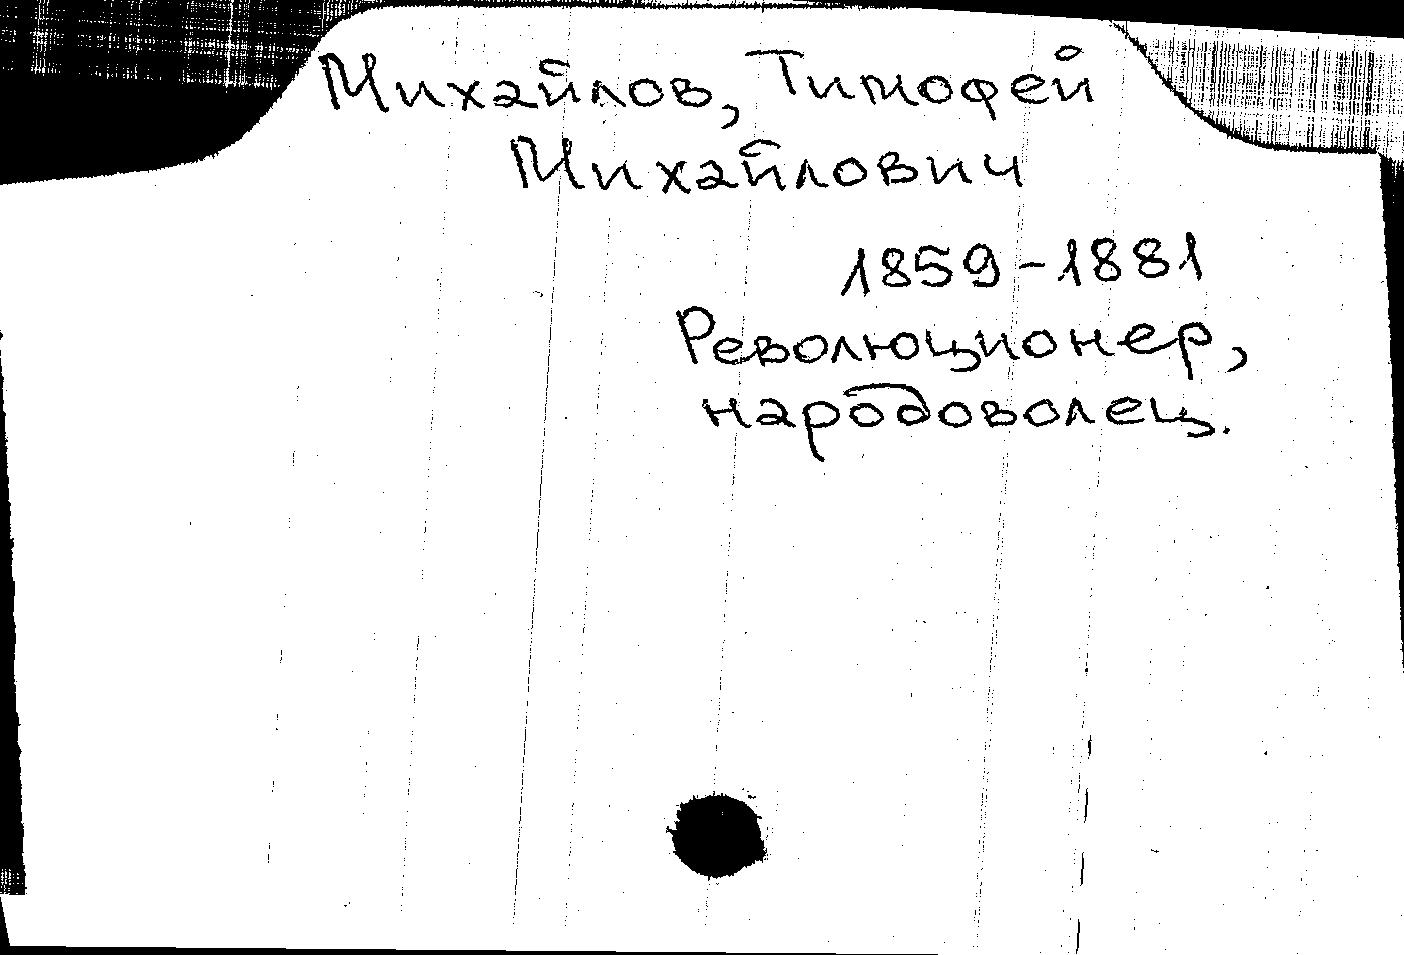 Михайлов, Тимофей
Михайлович
1859-1881
Революционер,
народоволец.